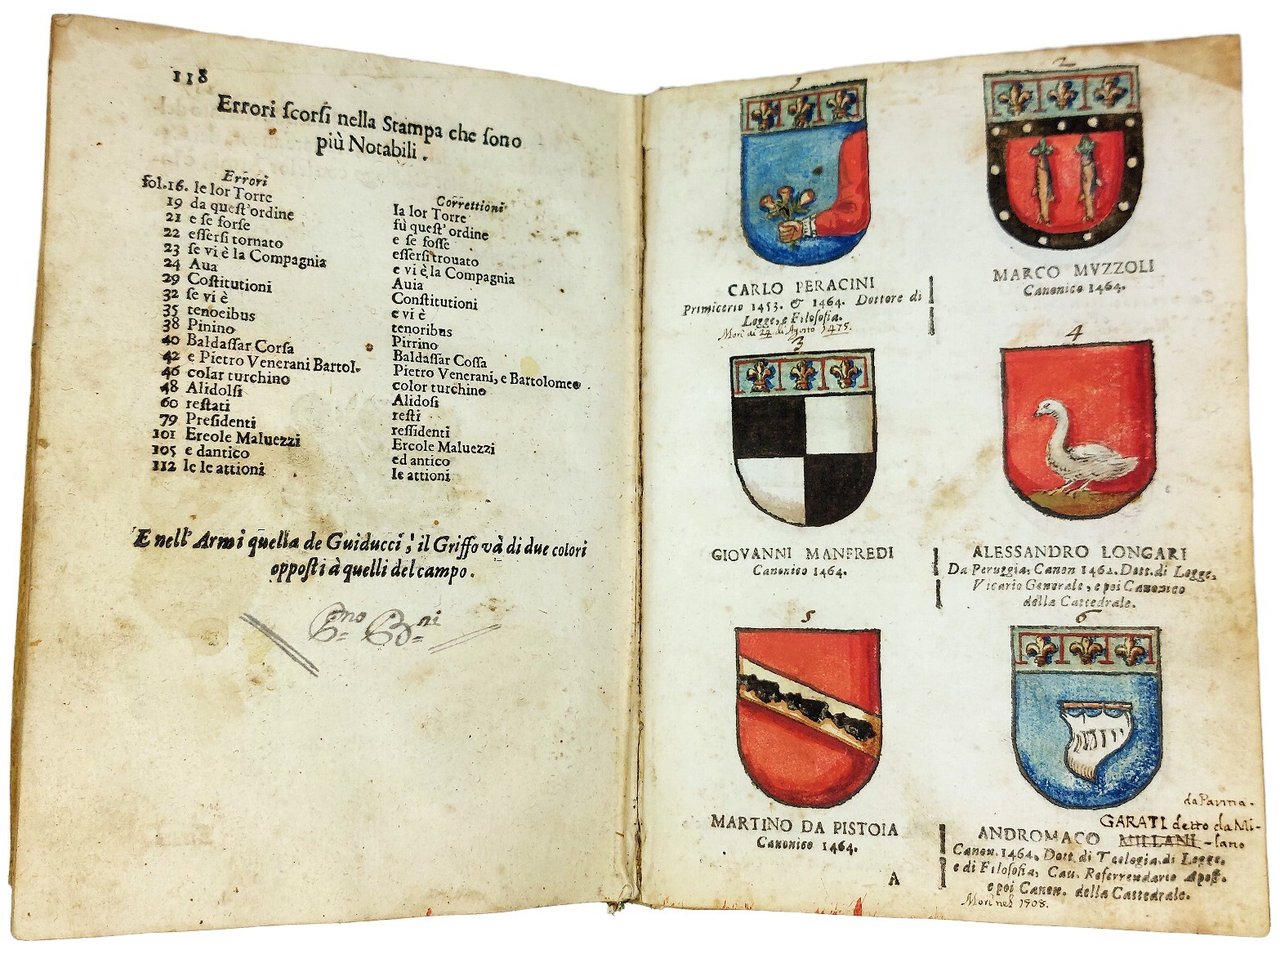 118
Errori scorsi nella Stampa che sono
più Notabili.
Errori Correttioni
fol.16. le lor Torre Ia lor Torre
19 da quest'ordine sù quest'ordine
21 e se forse e se fosse
22 essersi tornato essersi trouato
23 se vi è la Compagnia e vi è la Compagnia
24 Aua Auia
29 Costitutioni Constitutioni
32 se vi è e vi è
35 tenoeibus tenoribus
38 Pinino Pirrino
40 Baldassar Corsa Baldassar Cossa
42 e Pietro Venerani Bartol. Pietro Venerani, e Bartolomeo
46 colar turchino color turchino
48 Alidolsi Alidosi
60 restati resti
79 Presidenti ressidenti
101 Ereole Maluezzi Ercole Maluezzi
105 e dantico ed antico
112 le le attioni le attioni
E nell'Armi quella de Guiducci, il Griffo và di due colori
opposti à quelli del campo.
1
CARLO PERACINI
Primicerio 1453. & 1464. Dottore di
Legge, e Filosofia.
Morì ai 24 di Agosto 1475.
2
MARCO MVZZOLI
Canonico 1464.
3
GIOVANNI MANFREDI
Canonico 1464.
4
ALESSANDRO LONGARI
Da Peruggia, Canon 1464. Dott. di Legge,
Vicario Generale, e poi Canonico
della Cattedrale.
5
MARTINO DA PISTOIA
Canonico 1464.
A
6
da Parma.
GARATI detto da Mi-
ANDROMACO MILLANI -lano
Canon. 1464. Dott. di Teologia, di Legge,
e di Filosofia, Cau. Referrendario Apost.
e poi Canon. della Cattedrale.
Morì nel 1508.